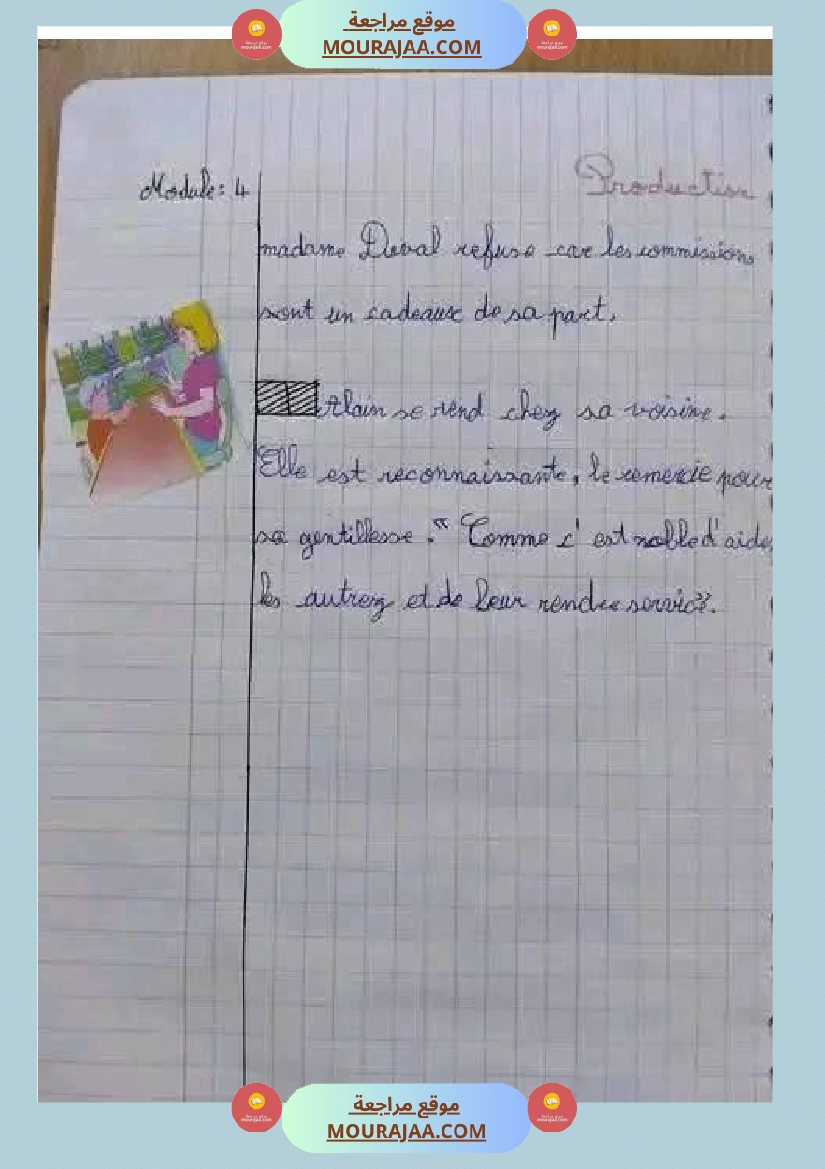 موقع مراجعة
MOURAJAA.COM
Module: 4
Production
madame Duval refuse car les commissions
sont un cadeaux de sa part.
Alain se rend chez sa voisine.
Elle est reconnaissante, le remercie pour
sa gentillesse. "Comme c'est noble d'aider
les autres et de leur rendre service".
موقع مراجعة
MOURAJAA.COM